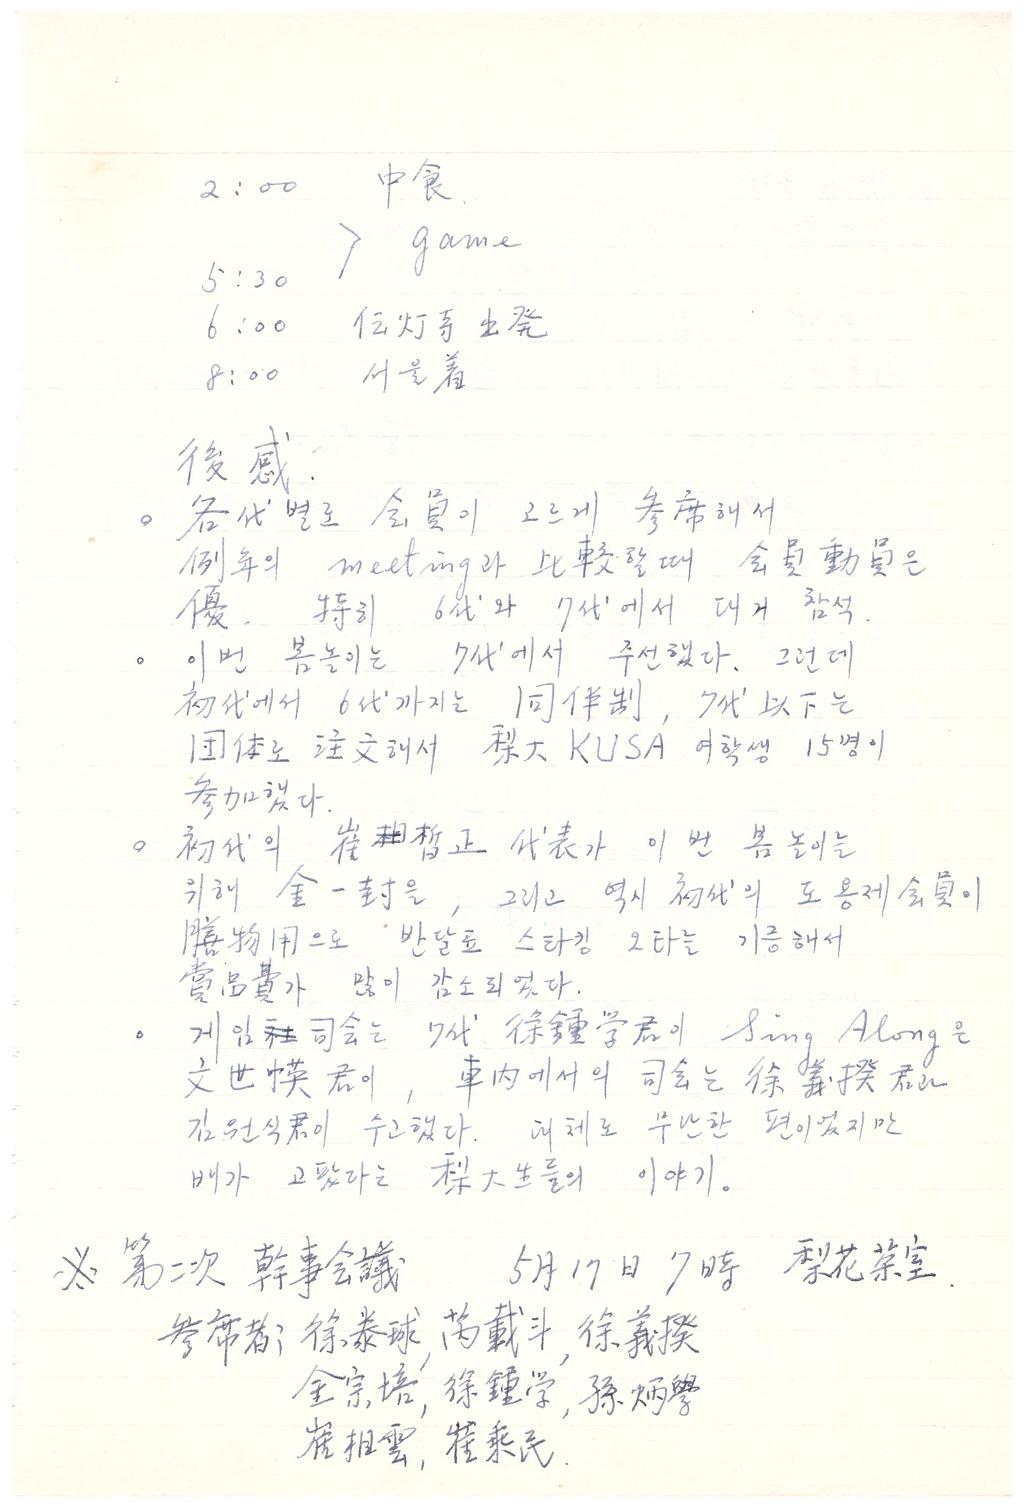 2:00 中食.
> game
5:30
6:00 伝灯寺 出発
8:00 서울着
後感.
○ 各代별로 会員이 고르게 参席해서
例年의 meeting과 比較할때 会員動員은
優. 特히 6代와 7代에서 대거 참석.
○ 이번 봄놀이는 7代에서 주선했다. 그런데
初代에서 6代까지는 同伴制, 7代以下는
団体로 注文해서 梨大 KUSA 여학생 15명이
参加했다.
○ 初代의 崔晳正 代表가 이번 봄놀이를
위해 金一封을, 그리고 역시 初代의 도용제会員이
膳物用으로 반달표 스타킹 2타를 기증해서
賞品費가 많이 감소되었다.
○ 게임 司会는 7代 徐鍾学君이 Sing Along은
文世煐君이, 車内에서의 司会는 徐義揆君과
김원식君이 수고했다. 대체로 무난한 편이었지만
배가 고팠다는 梨大生들의 이야기。
※ 第二次 幹事会議 5月17日 7時 梨花茶室.
参席者; 徐泰球, 芮載斗, 徐義揆
金宗培, 徐鍾学, 孫炳學
崔相雲, 崔秉民.